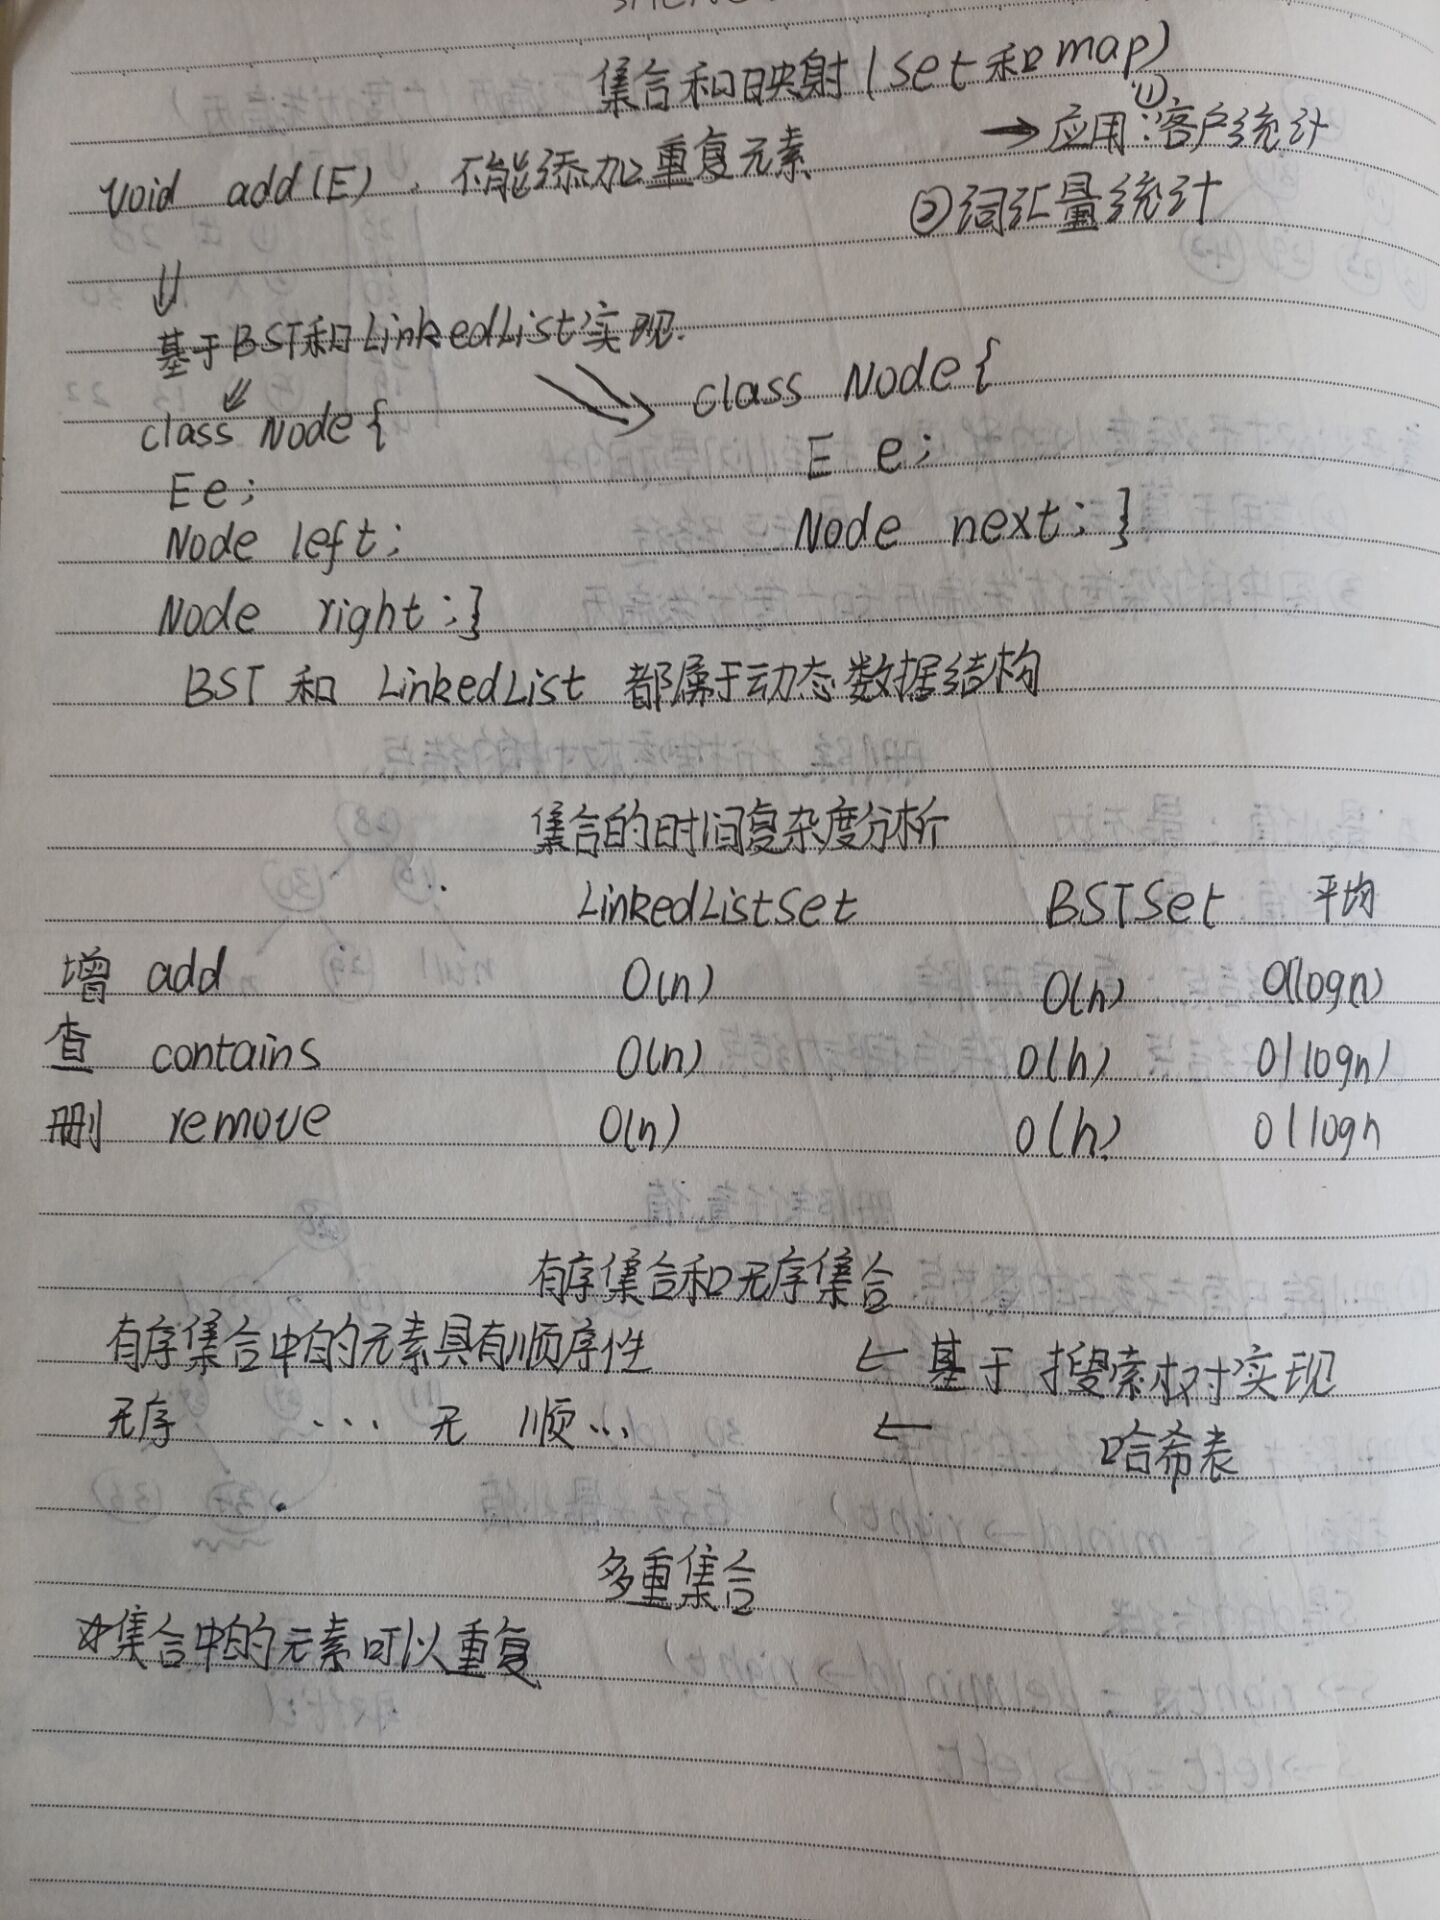 集合和映射(set和map)
void add(E). 不能添加重复元素 → 应用:①客户统计
②词汇量统计
⇓
基于BST和LinkedList实现.
class Node{
E e;
Node left;
Node right;}
class Node{
E e;
Node next;}
BST 和 LinkedList 都属于动态数据结构
集合的时间复杂度分析
LinkedListSet BSTSet 平均
增 add O(n) O(h) O(logn)
查 contains O(n) O(h) O(logn)
删 remove O(n) O(h) O(logn
有序集合和无序集合
有序集合中的元素具有顺序性 ← 基于搜索树实现
无序 ... 无 顺... ← 哈希表
多重集合
集合中的元素可以重复